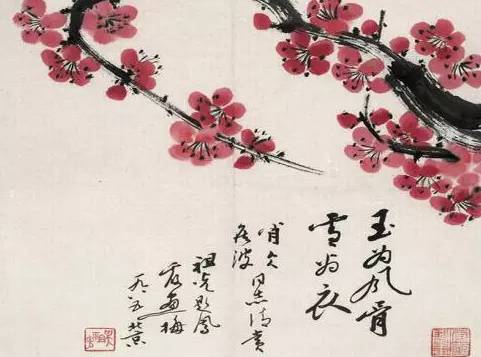 玉为风骨
雪为衣
同志清赏
祖光题凤
霞画梅
一九八五北京